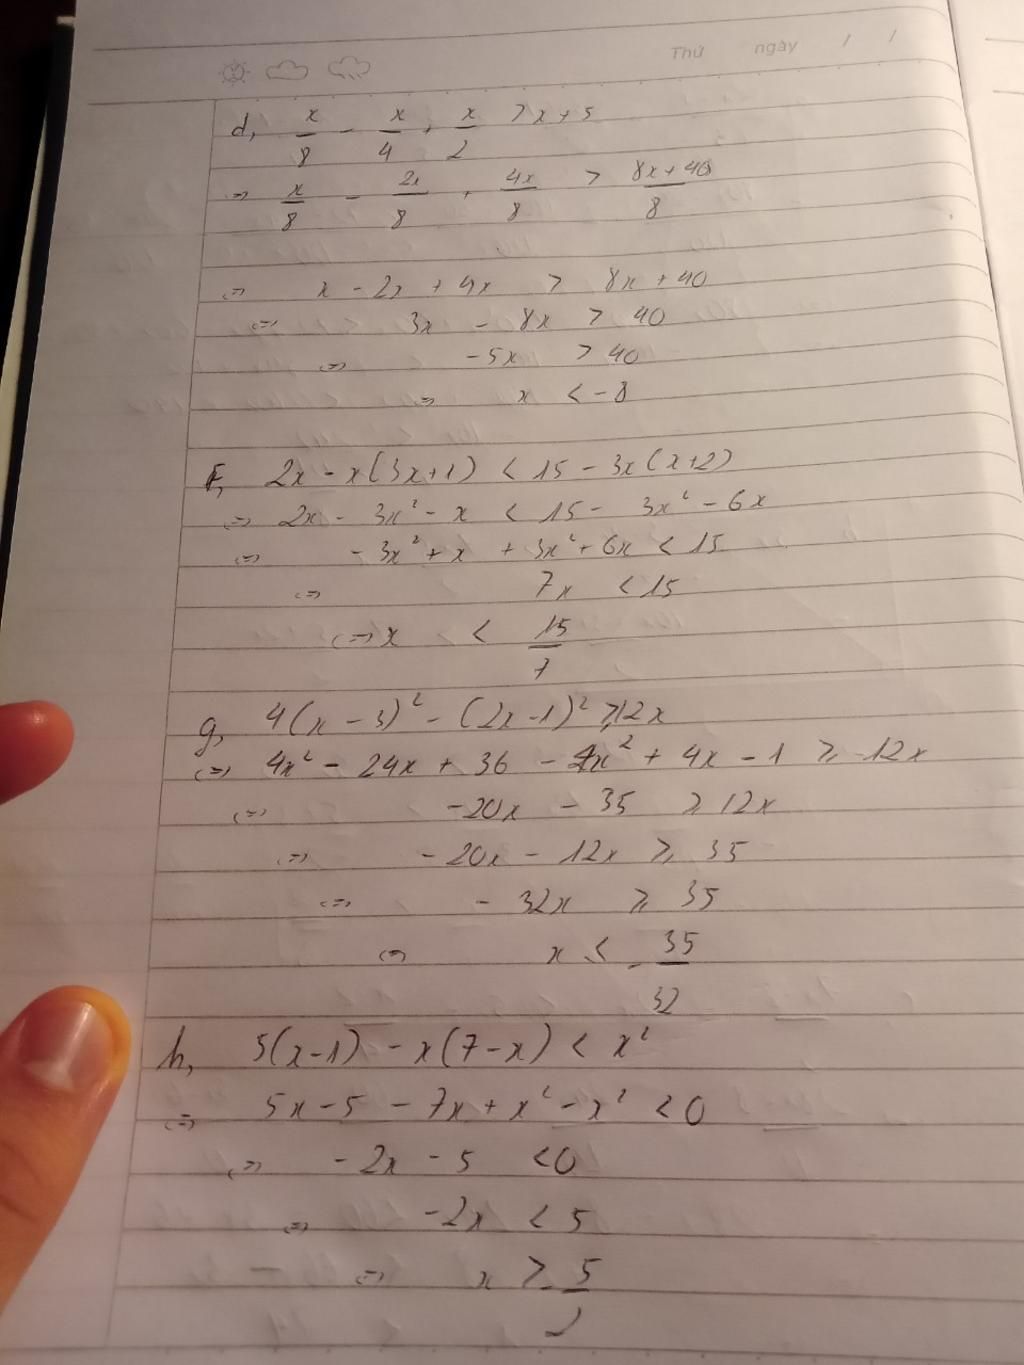 Thứ ngày / /
d, x/8 - x/4 + x/2 > x + 5
⇔ x/8 - 2x/8 + 4x/8 > 8x + 40/8
⇔ x - 2x + 4x > 8x + 40
⇔ 3x - 8x > 40
⇔ -5x > 40
⇔ x < -8
f, 2x - x(3x+1) < 15 - 3x(x+2)
⇔ 2x - 3x² - x < 15 - 3x² - 6x
⇔ -3x² + x + 3x² + 6x < 15
⇔ 7x < 15
⇔ x < 15/7
g, 4(x - 3)² - (2x - 1)² ≥ 12x
⇔ 4x² - 24x + 36 - 4x² + 4x - 1 ≥ 12x
⇔ -20x - 35 ≥ 12x
⇔ -20x - 12x ≥ 35
⇔ -32x ≥ 35
⇔ x ≤ -35/32
h, 5(x-1) - x(7-x) < x²
⇔ 5x - 5 - 7x + x² - x² < 0
⇔ -2x - 5 < 0
⇔ -2x < 5
⇔ x > -5/2